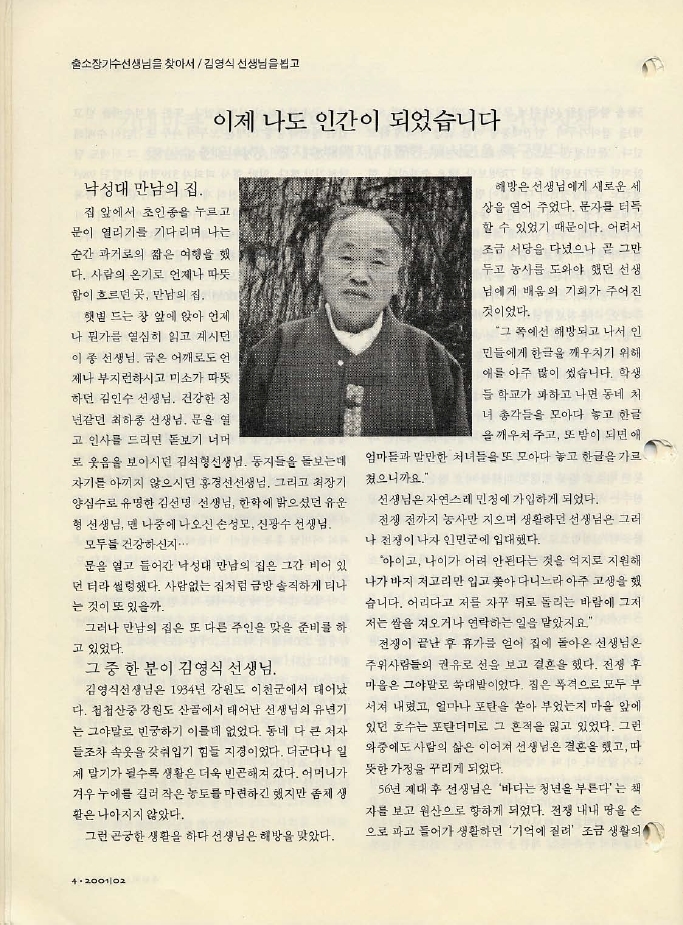 출소장기수선생님을 찾아서 / 김영식 선생님을 뵙고
이제 나도 인간이 되었습니다
낙성대 만남의 집.
집 앞에서 초인종을 누르고
문이 열리기를 기다리며 나는
순간 과거로의 짧은 여행을 했
다. 사람의 온기로 언제나 따뜻
함이 흐르던 곳, 만남의 집.
햇볕 드는 창 앞에 앉아 언제
나 뭔가를 열심히 읽고 계시던
이 종 선생님. 굽은 어깨로도 언
제나 부지런하시고 미소가 따뜻
하던 김인수 선생님. 건강한 청
년같던 최하종 선생님. 문을 열
고 인사를 드리면 돋보기 너머
로 웃음을 보이시던 김석형선생님. 동지들을 돌보는데
자기를 아끼지 않으시던 홍경선선생님. 그리고 최장기
양심수로 유명한 김선명 선생님, 한학에 밝으셨던 유운
형 선생님, 맨 나중에 나오신 손성모, 신광수 선생님.
모두들 건강하신지…
문을 열고 들어간 낙성대 만남의 집은 그간 비어 있
던 터라 썰렁했다. 사람없는 집처럼 금방 솔직하게 티나
는 것이 또 있을까.
그러나 만남의 집은 또 다른 주인을 맞을 준비를 하
고 있었다.
그 중 한 분이 김영식 선생님.
김영식선생님은 1934년 강원도 이천군에서 태어났
다. 첩첩산중 강원도 산골에서 태어난 선생님의 유년기
는 그야말로 빈궁하기 이를데 없었다. 동네 다 큰 처자
들조차 속옷을 갖춰입기 힘들 지경이었다. 더군다나 일
제 말기가 될수록 생활은 더욱 빈곤해져 갔다. 어머니가
겨우 누에를 길러 작은 농토를 마련하긴 했지만 좀체 생
활은 나아지지 않았다.
그런 곤궁한 생활을 하다 선생님은 해방을 맞았다.
해방은 선생님에게 새로운 세
상을 열어 주었다. 문자를 터득
할 수 있었기 때문이다. 어려서
조금 서당을 다녔으나 곧 그만
두고 농사를 도와야 했던 선생
님에게 배움의 기회가 주어진
것이었다.
"그 쪽에선 해방되고 나서 인
민들에게 한글을 깨우치기 위해
애를 아주 많이 썼습니다. 학생
들 학교가 파하고 나면 동네 처
녀 총각들을 모아다 놓고 한글
을 깨우쳐 주고, 또 밤이 되면 애
엄마들과 말만한 처녀들을 또 모아다 놓고 한글을 가르
쳤으니까요."
선생님은 자연스레 민청에 가입하게 되었다.
전쟁 전까지 농사만 지으며 생활하던 선생님은 그러
나 전쟁이 나자 인민군에 입대했다.
"아이고, 나이가 어려 안된다는 것을 억지로 지원해
나가 바지 저고리만 입고 쫓아 다니느라 아주 고생을 했
습니다. 어리다고 저를 자꾸 뒤로 돌리는 바람에 그저
저는 쌀을 져오거나 연락하는 일을 맡았지요."
전쟁이 끝난 후 휴가를 얻어 집에 돌아온 선생님은
주위사람들의 권유로 선을 보고 결혼을 했다. 전쟁 후
마을은 그야말로 쑥대밭이었다. 집은 폭격으로 모두 부
서져 내렸고, 얼마나 포탄을 쏟아 부었는지 마을 앞에
있던 호수는 포탄더미로 그 흔적을 잃고 있었다. 그런
와중에도 사람의 삶은 이어져 선생님은 결혼을 했고, 따
뜻한 가정을 꾸리게 되었다.
56년 제대 후 선생님은 '바다는 청년을 부른다' 는 책
자를 보고 원산으로 향하게 되었다. 전쟁 내내 땅을 손
으로 파고 들어가 생활하던 '기억에 질려' 조금 생활의
4 · 2001|02